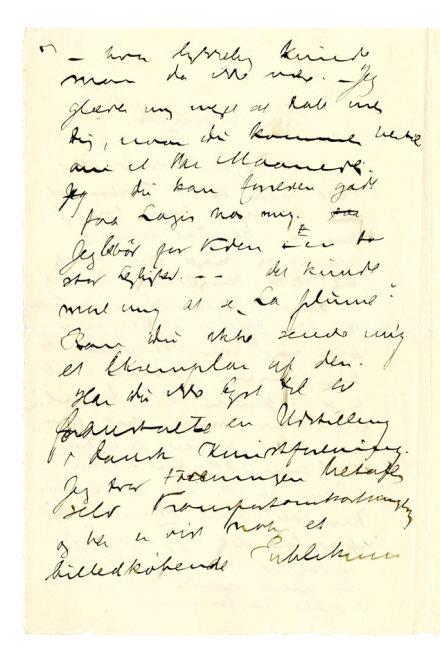 – hvor lykkelig kunde
man da ikke være. – Jeg
glæder mig meget at tale med
Dig, naar du kommer hertil
om et Par Maaneder.
Jeg du kan foresten godt
faa Logis hos mig. faa
Jeg bebor for Tiden En
stor Leilighed. – – det kunde
more mig at se „La plume“
Kan du ikke sende mig
et Eksemplar af den.
Har du ikke Lyst til at
foranstalte en Udstilling
i dansk Kunstforening.
Jeg tror Foreningen betaler
selv Transportomkostninger
og her er vist nok et
billedkøbende Publikum